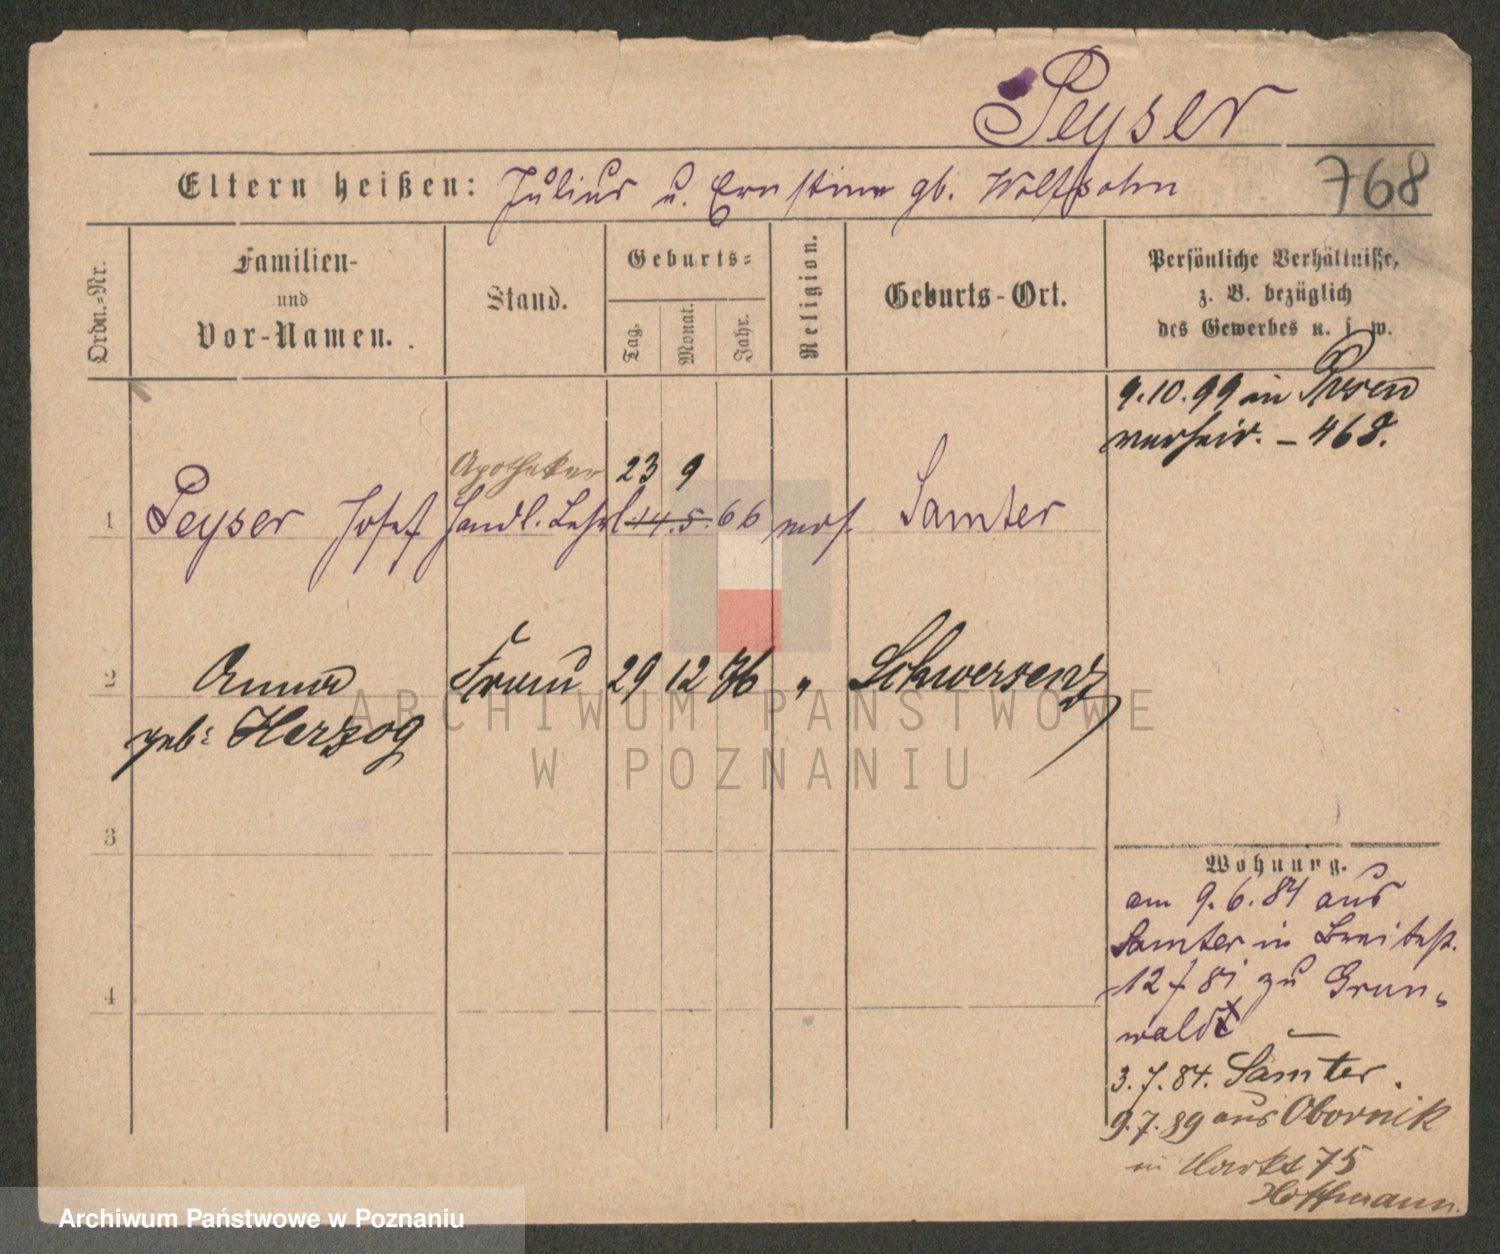 Peyser
Eltern heißen: Julius u. Ernstine gb. Wolfsohn
768
Ordn.-Nr.
Familien-
und
Vor-Namen.
Stand.
Geburts-
Tag.
Monat.
Jahr.
Religion.
Geburts-Ort.
Persönliche Verhältnisse,
z. B. bezüglich
des Gewerbes u. s. w.
9.10.99 in Posen
verheir. – 468.
Apotheker 23 9
1 Peyser Josef Handl. Lehrl 14. 5. 66 mos. Samter
2 Anna Frau 29 12 76 " Schwersenz
geb: Herzog
ARCHIWUM PAŃSTWOWE
W POZNANIU
3
Wohnung.
am 9. 6. 84 aus
Samter in Breitestr.
12 zu Grun-
wald
4
3. 7. 84. Samter.
9. 7. 89 aus Obornik
in Markt 75
Hoffmann.
Archiwum Państwowe w Poznaniu